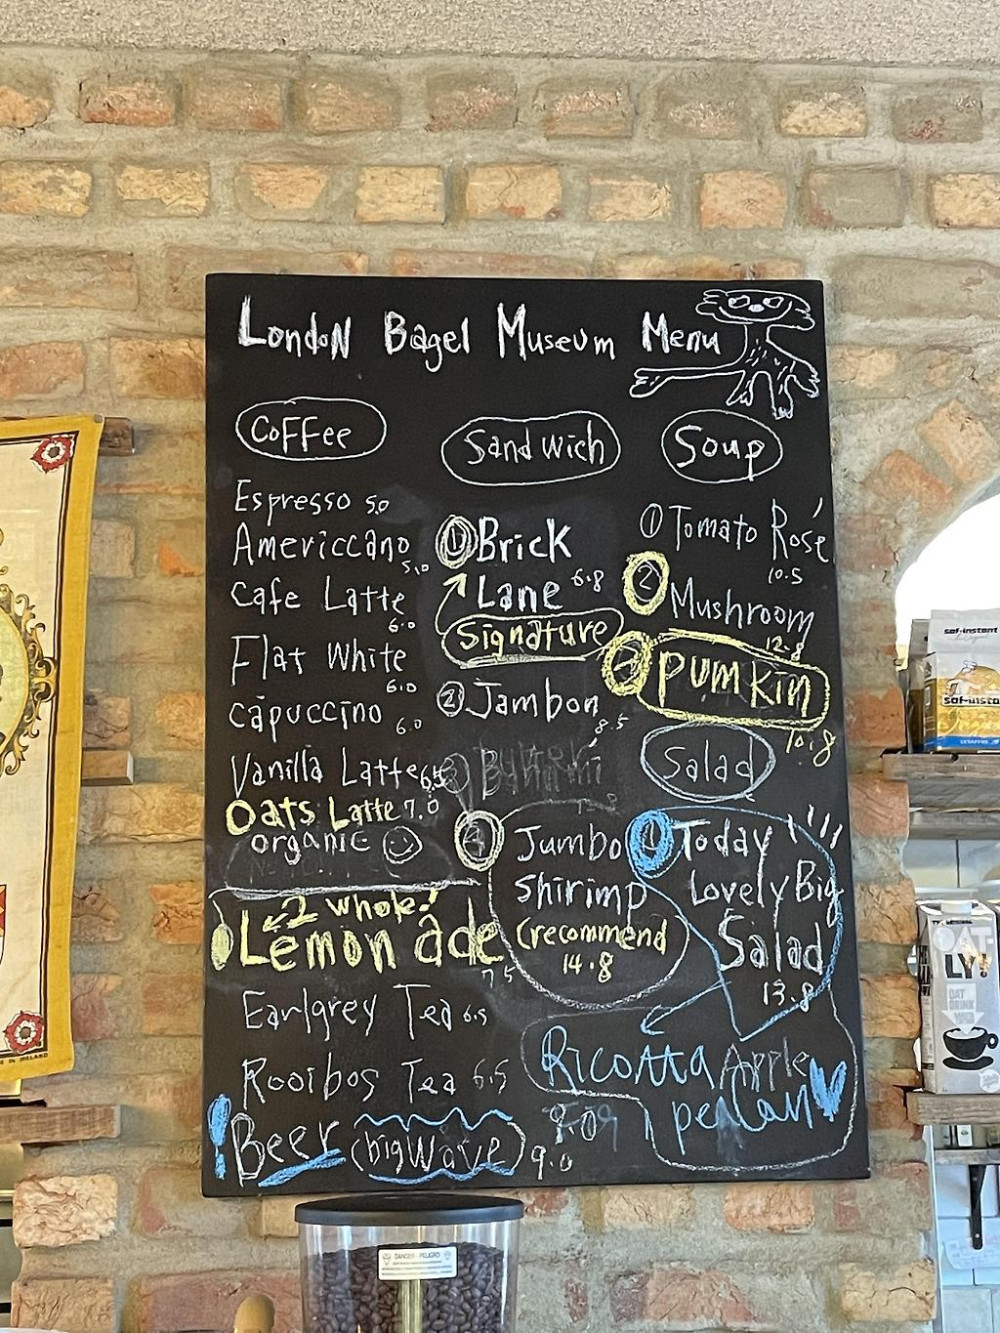 London Bagel Museum Menu
Coffee
Espresso 5.0
Americcano 5.0
Cafe Latte 6.0
Flat White 6.0
capuccino 6.0
Vanilla Latte 6.5
Oats Latte 7.0
organic
2 whole!
Lemon ade 7.5
Earlgrey Tea 6.5
Rooibos Tea 6.5
Beer (bigWave) 9.0
Sandwich
① Brick
Lane 6.8
Signature
② Jambon 8.5
④ Jumbo
Shirimp
(recommend
14.8
Soup
① Tomato Rosé
10.5
② Mushroom
12.8
Pumkin
10.8
Salad
① Today
Lovely Big
Salad
13.8
Ricotta Apple
pecan
saf-instant
saf-insta
LESAFFRE
DANGER - PELIGRO
OAT
LY!
OAT
DRINK
E IN IRELAND